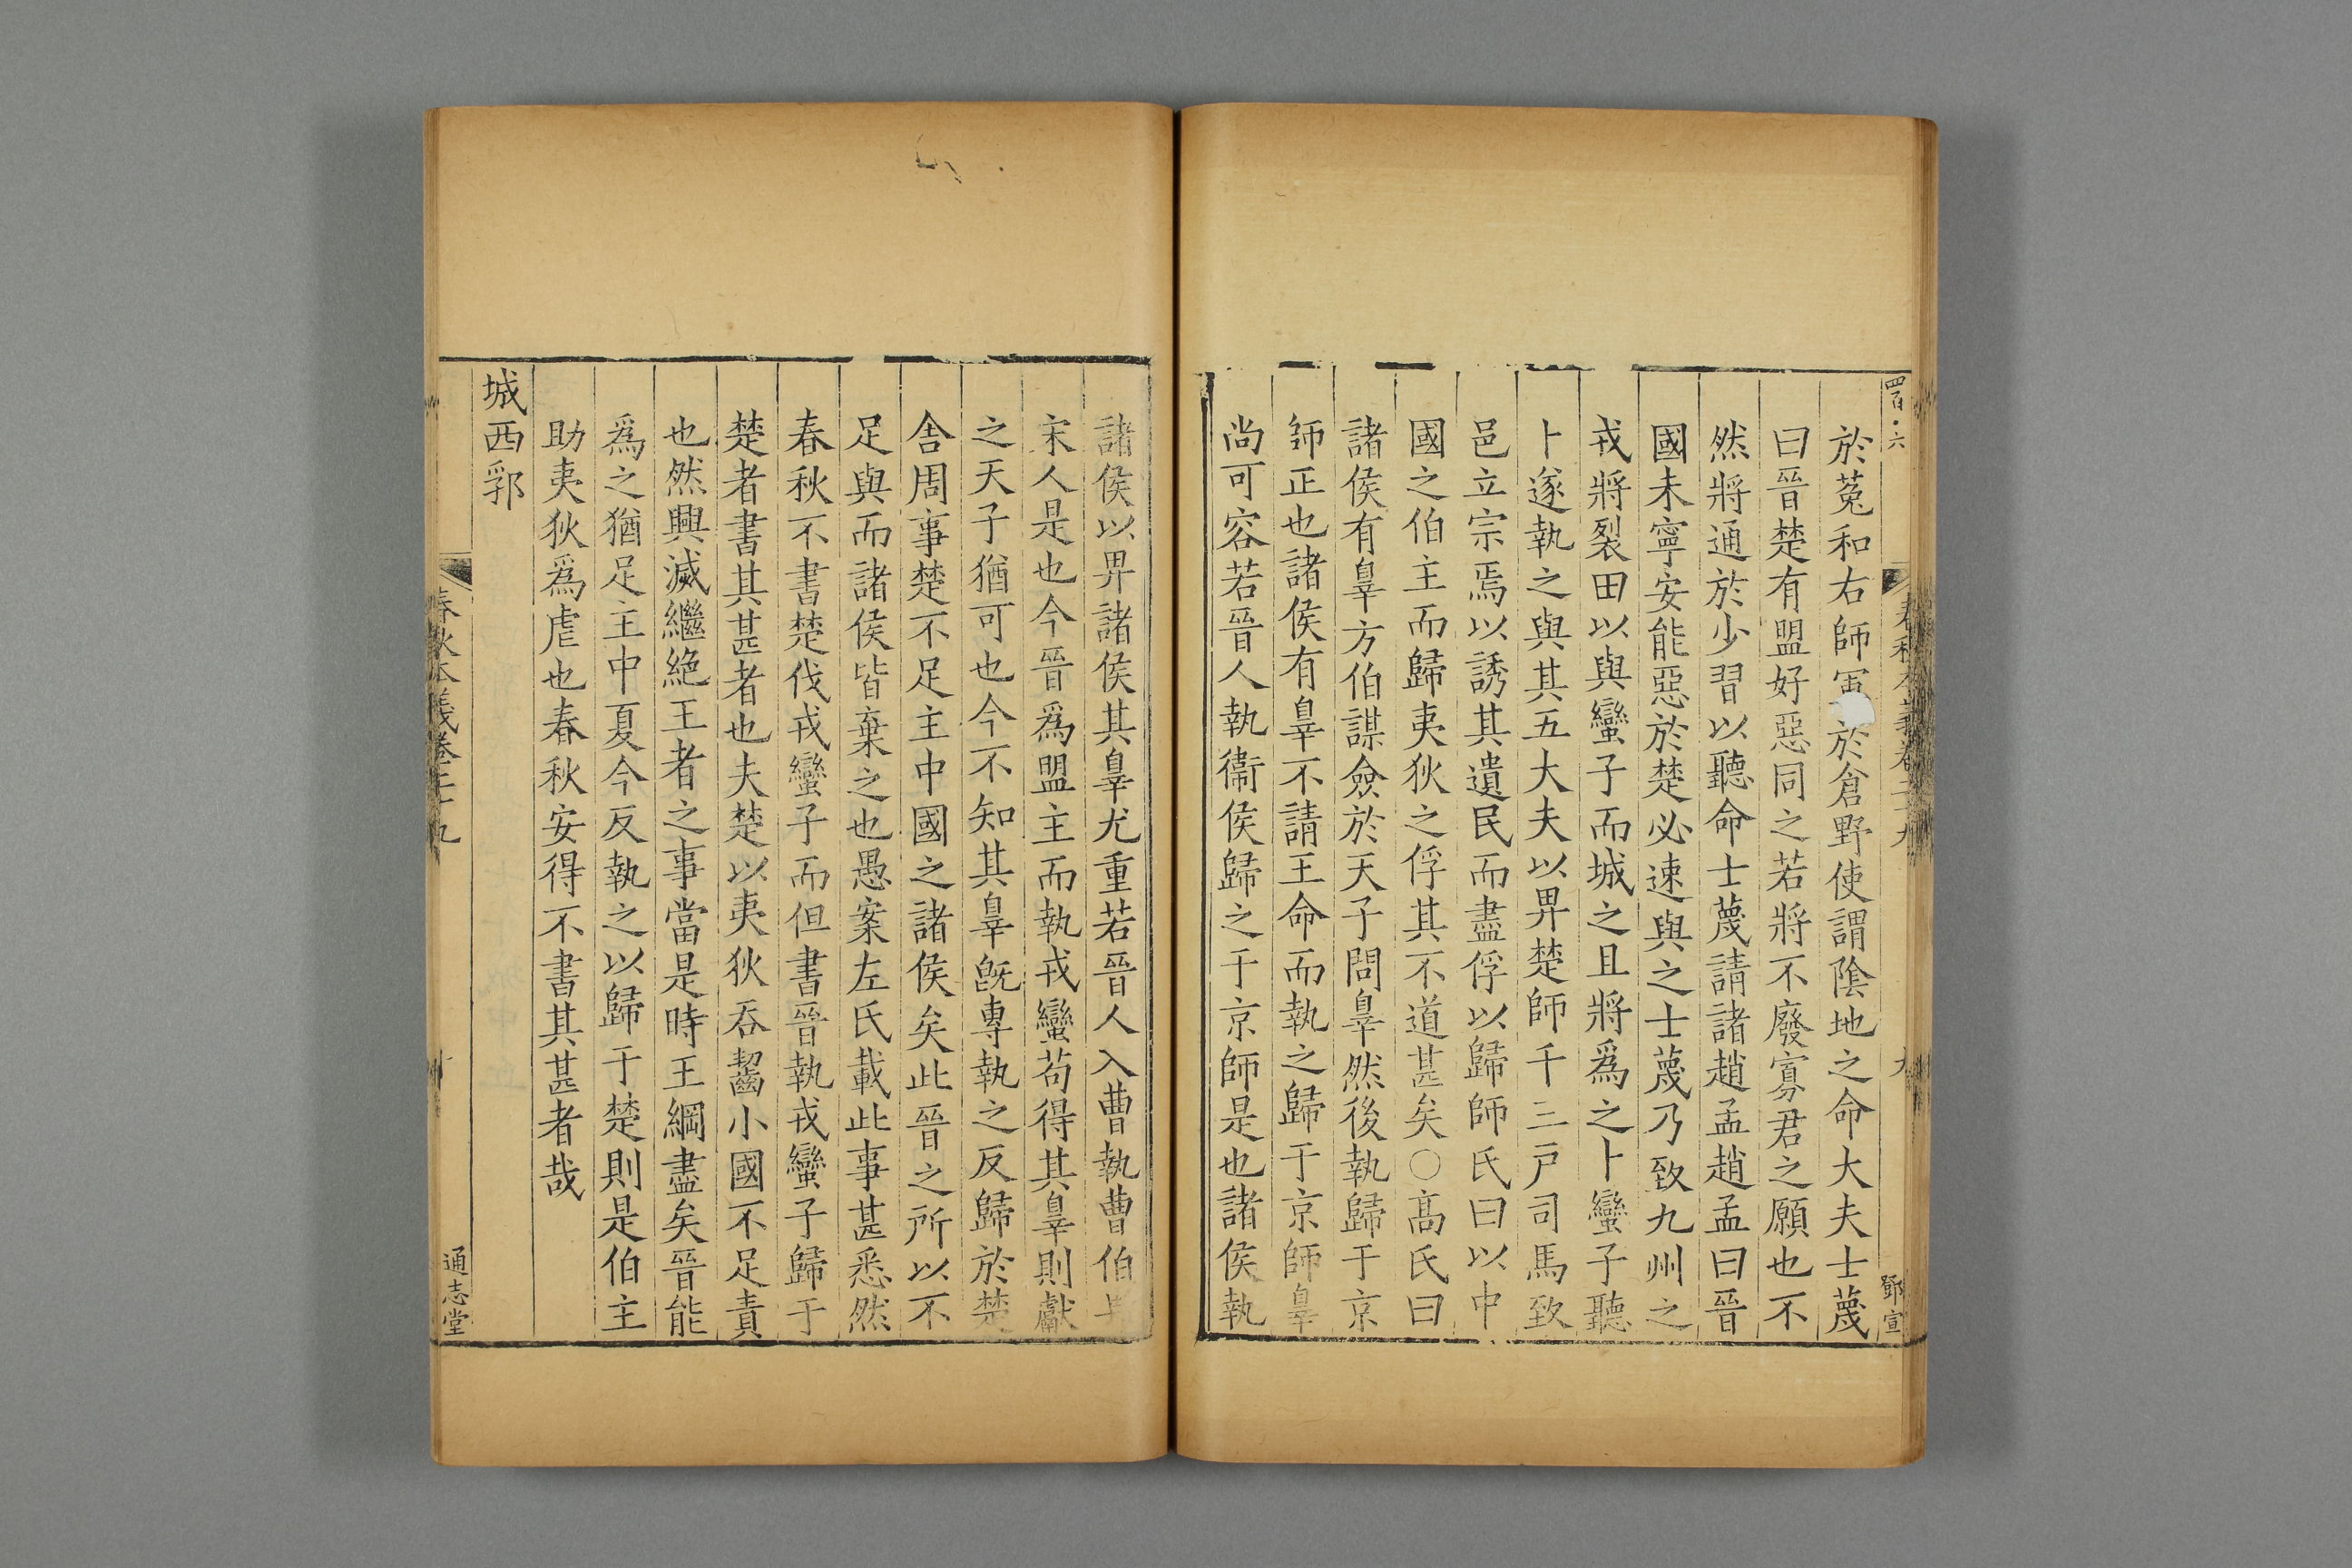 四百·六
春秋本義卷二十九
九
鄧宣
於菟和右師軍於倉野使謂陰地之命大夫士蔑
曰晉楚有盟好惡同之若將不廢寡君之願也不
然將通於少習以聽命士蔑請諸趙孟趙孟曰晉
國未寧安能惡於楚必速與之士蔑乃致九州之
戎將裂田以與蠻子而城之且將爲之卜蠻子聽
卜遂執之與其五大夫以畀楚師千三戸司馬致
邑立宗焉以誘其遺民而盡俘以歸師氏曰以中
國之伯主而歸夷狄之俘其不道甚矣○髙氏曰
諸侯有辠方伯謀僉於天子問辠然後執歸于京
師正也諸侯有辠不請王命而執之歸于京師辠
尚可容若晉人執衞侯歸之于京師是也諸侯執
諸侯以畀諸侯其辠尤重若晉人入曹執曹伯畀
宋人是也今晉爲盟主而執戎蠻苟得其辠則獻
之天子猶可也今不知其辠旣專執之反歸於楚
舎周事楚不足主中國之諸侯矣此晉之所以不
足與而諸侯皆棄之也愚案左氏載此事甚悉然
春秋不書楚伐戎蠻子而但書晉執戎蠻子歸于
楚者書其甚者也夫楚以夷狄吞齧小國不足責
也然興滅繼絶王者之事當是時王綱盡矣晉能
爲之猶足主中夏今反執之以歸于楚則是伯主
助夷狄爲虐也春秋安得不書其甚者哉
城西郛
春秋本義卷二十九
通志堂